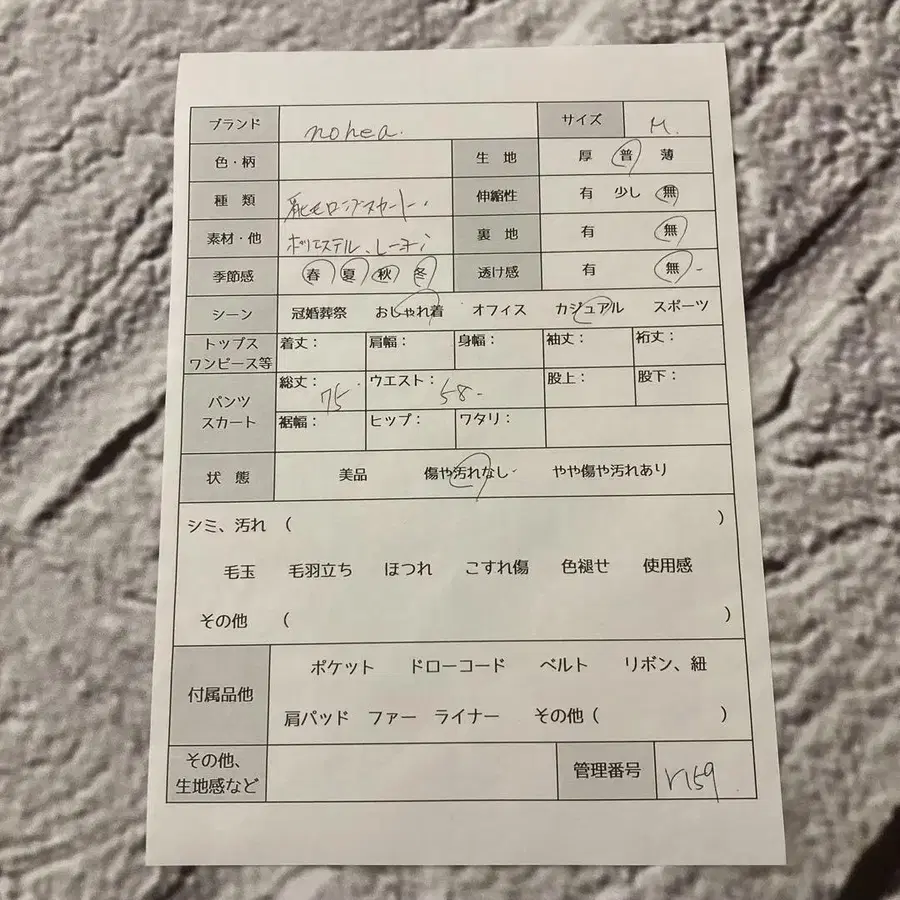 ブランド nohea. サイズ M.
色・柄 生地 厚 普 薄
種類 ロングスカート 伸縮性 有 少し 無
素材・他 ポリエステル、レーヨン 裏地 有 無
季節感 春 夏 秋 冬 透け感 有 無
シーン 冠婚葬祭 おしゃれ着 オフィス カジュアル スポーツ
トップス ワンピース等 着丈: 肩幅: 身幅: 袖丈: 裄丈:
パンツ スカート 総丈: 75 ウエスト: 58 股上: 股下:
裾幅: ヒップ: ワタリ:
状態 美品 傷や汚れなし やや傷や汚れあり
シミ、汚れ ( )
毛玉 毛羽立ち ほつれ こすれ傷 色褪せ 使用感
その他 ( )
付属品他 ポケット ドローコード ベルト リボン、紐
肩パッド ファー ライナー その他 ( )
その他、生地感など 管理番号 r159